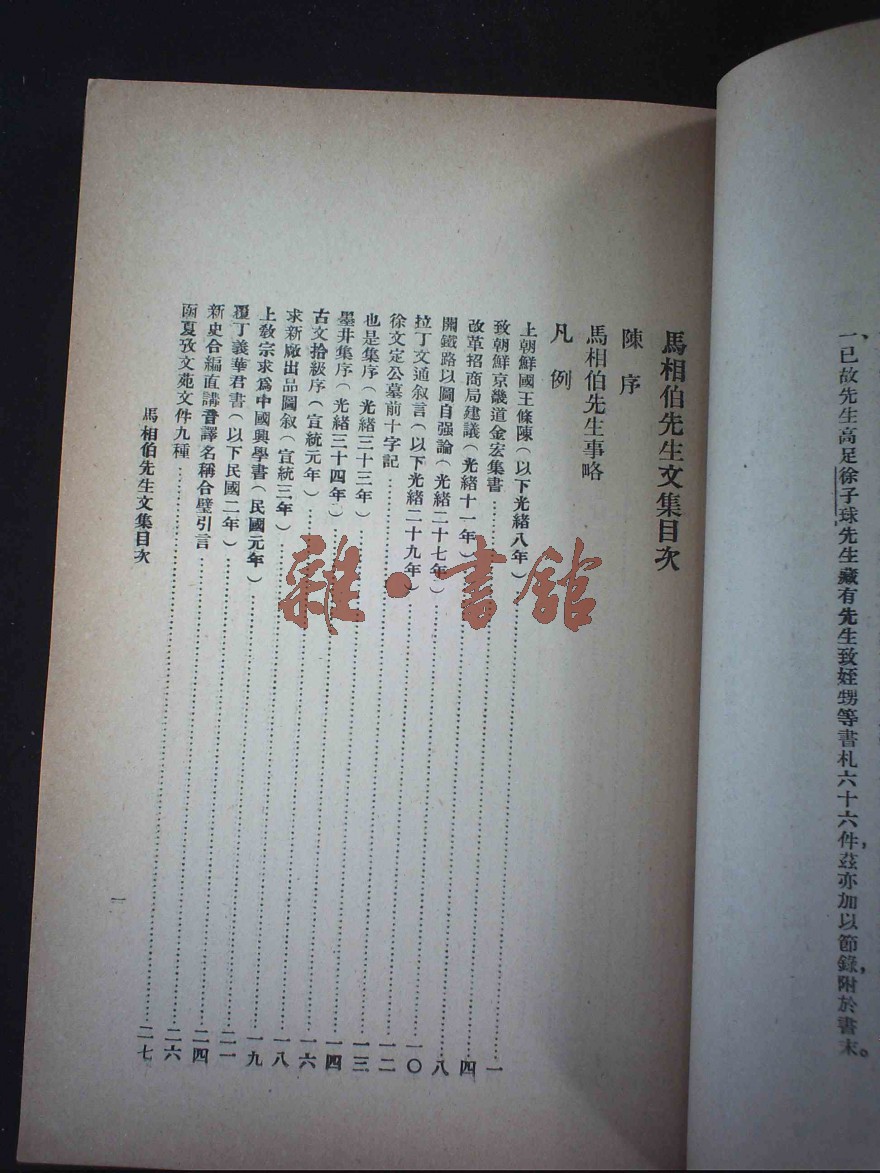 一、已故先生高足徐子球先生藏有先生致姪甥等書札六十六件，茲亦加以節錄，附於書末。
馬相伯先生文集目次
陳序
馬相伯先生事略
凡例
上朝鮮國王條陳（以下光緒八年）……一
致朝鮮京畿道金宏集書……四
改革招商局建議（光緒十一年）……八
開鐵路以圖自强論（光緒二十七年）……一〇
拉丁文通叙言（以下光緒二十九年）……一二
徐文定公墓前十字記……一三
也是集序（光緒三十三年）……一四
墨井集序（光緒三十四年）……一六
古文拾級序（宣統元年）……一八
求新廠出品圖叙（宣統三年）……一九
上敎宗求爲中國興學書（民國元年）……二一
覆丁義華君書（以下民國二年）……二四
新史合編直講音譯名稱合璧引言……二六
函夏攷文苑文件九種……二七
馬相伯先生文集目次
一
雜·書館